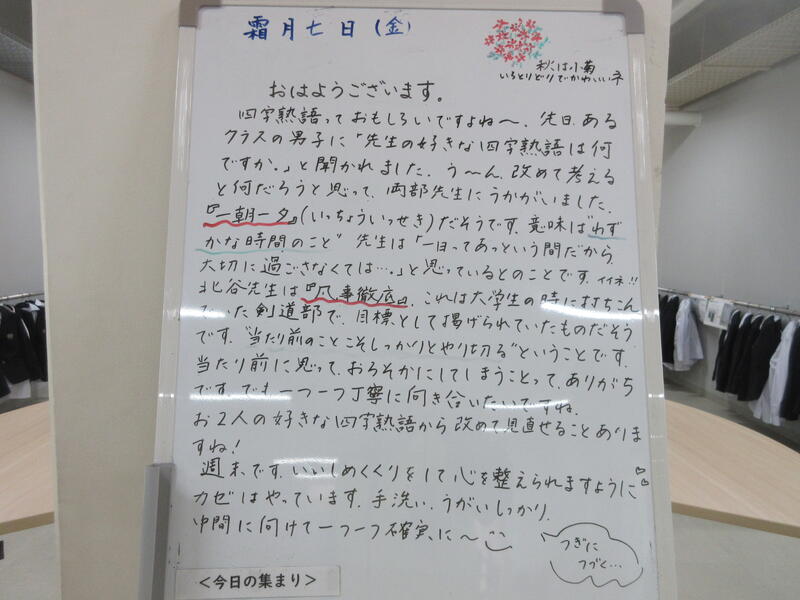 霜月七日(金)
秋は小菊
いろとりどりでかわいいネ
おはようございます。
四字熟語っておもしろいですよね〜。先日、ある
クラスの男子に「先生の好きな四字熟語は何
ですか。」と聞かれました。う〜ん、改めて考える
と何だろうと思って、両部先生にうかがいました。
『一朝一夕』(いっちょういっせき)だそうです。意味は“わず
かな時間のこと” 先生は「一日ってあっという間だから
大切に過ごさなくては…。」と思っているとのことです。イイネ!!
北谷先生は『凡事徹底』。これは大学生の時に打ちこん
でいた剣道部で、目標として掲げられていたものだそう
です。“当たり前のことこそしっかりとやり切る”ということです。
当たり前に思って、おろそかにしてしまうことって、ありがち
です。でも一つ一つ丁寧に向き合いたいですね。
お2人の好きな四字熟語から改めて見直せることありま
すね!
週末です。いいしめくくりをして心を整えられますように♡♡
カゼはやっています。手洗い、うがいしっかり。
中間に向けて一つ一つ確実に〜
つぎに
つづく…
<今日の集まり>